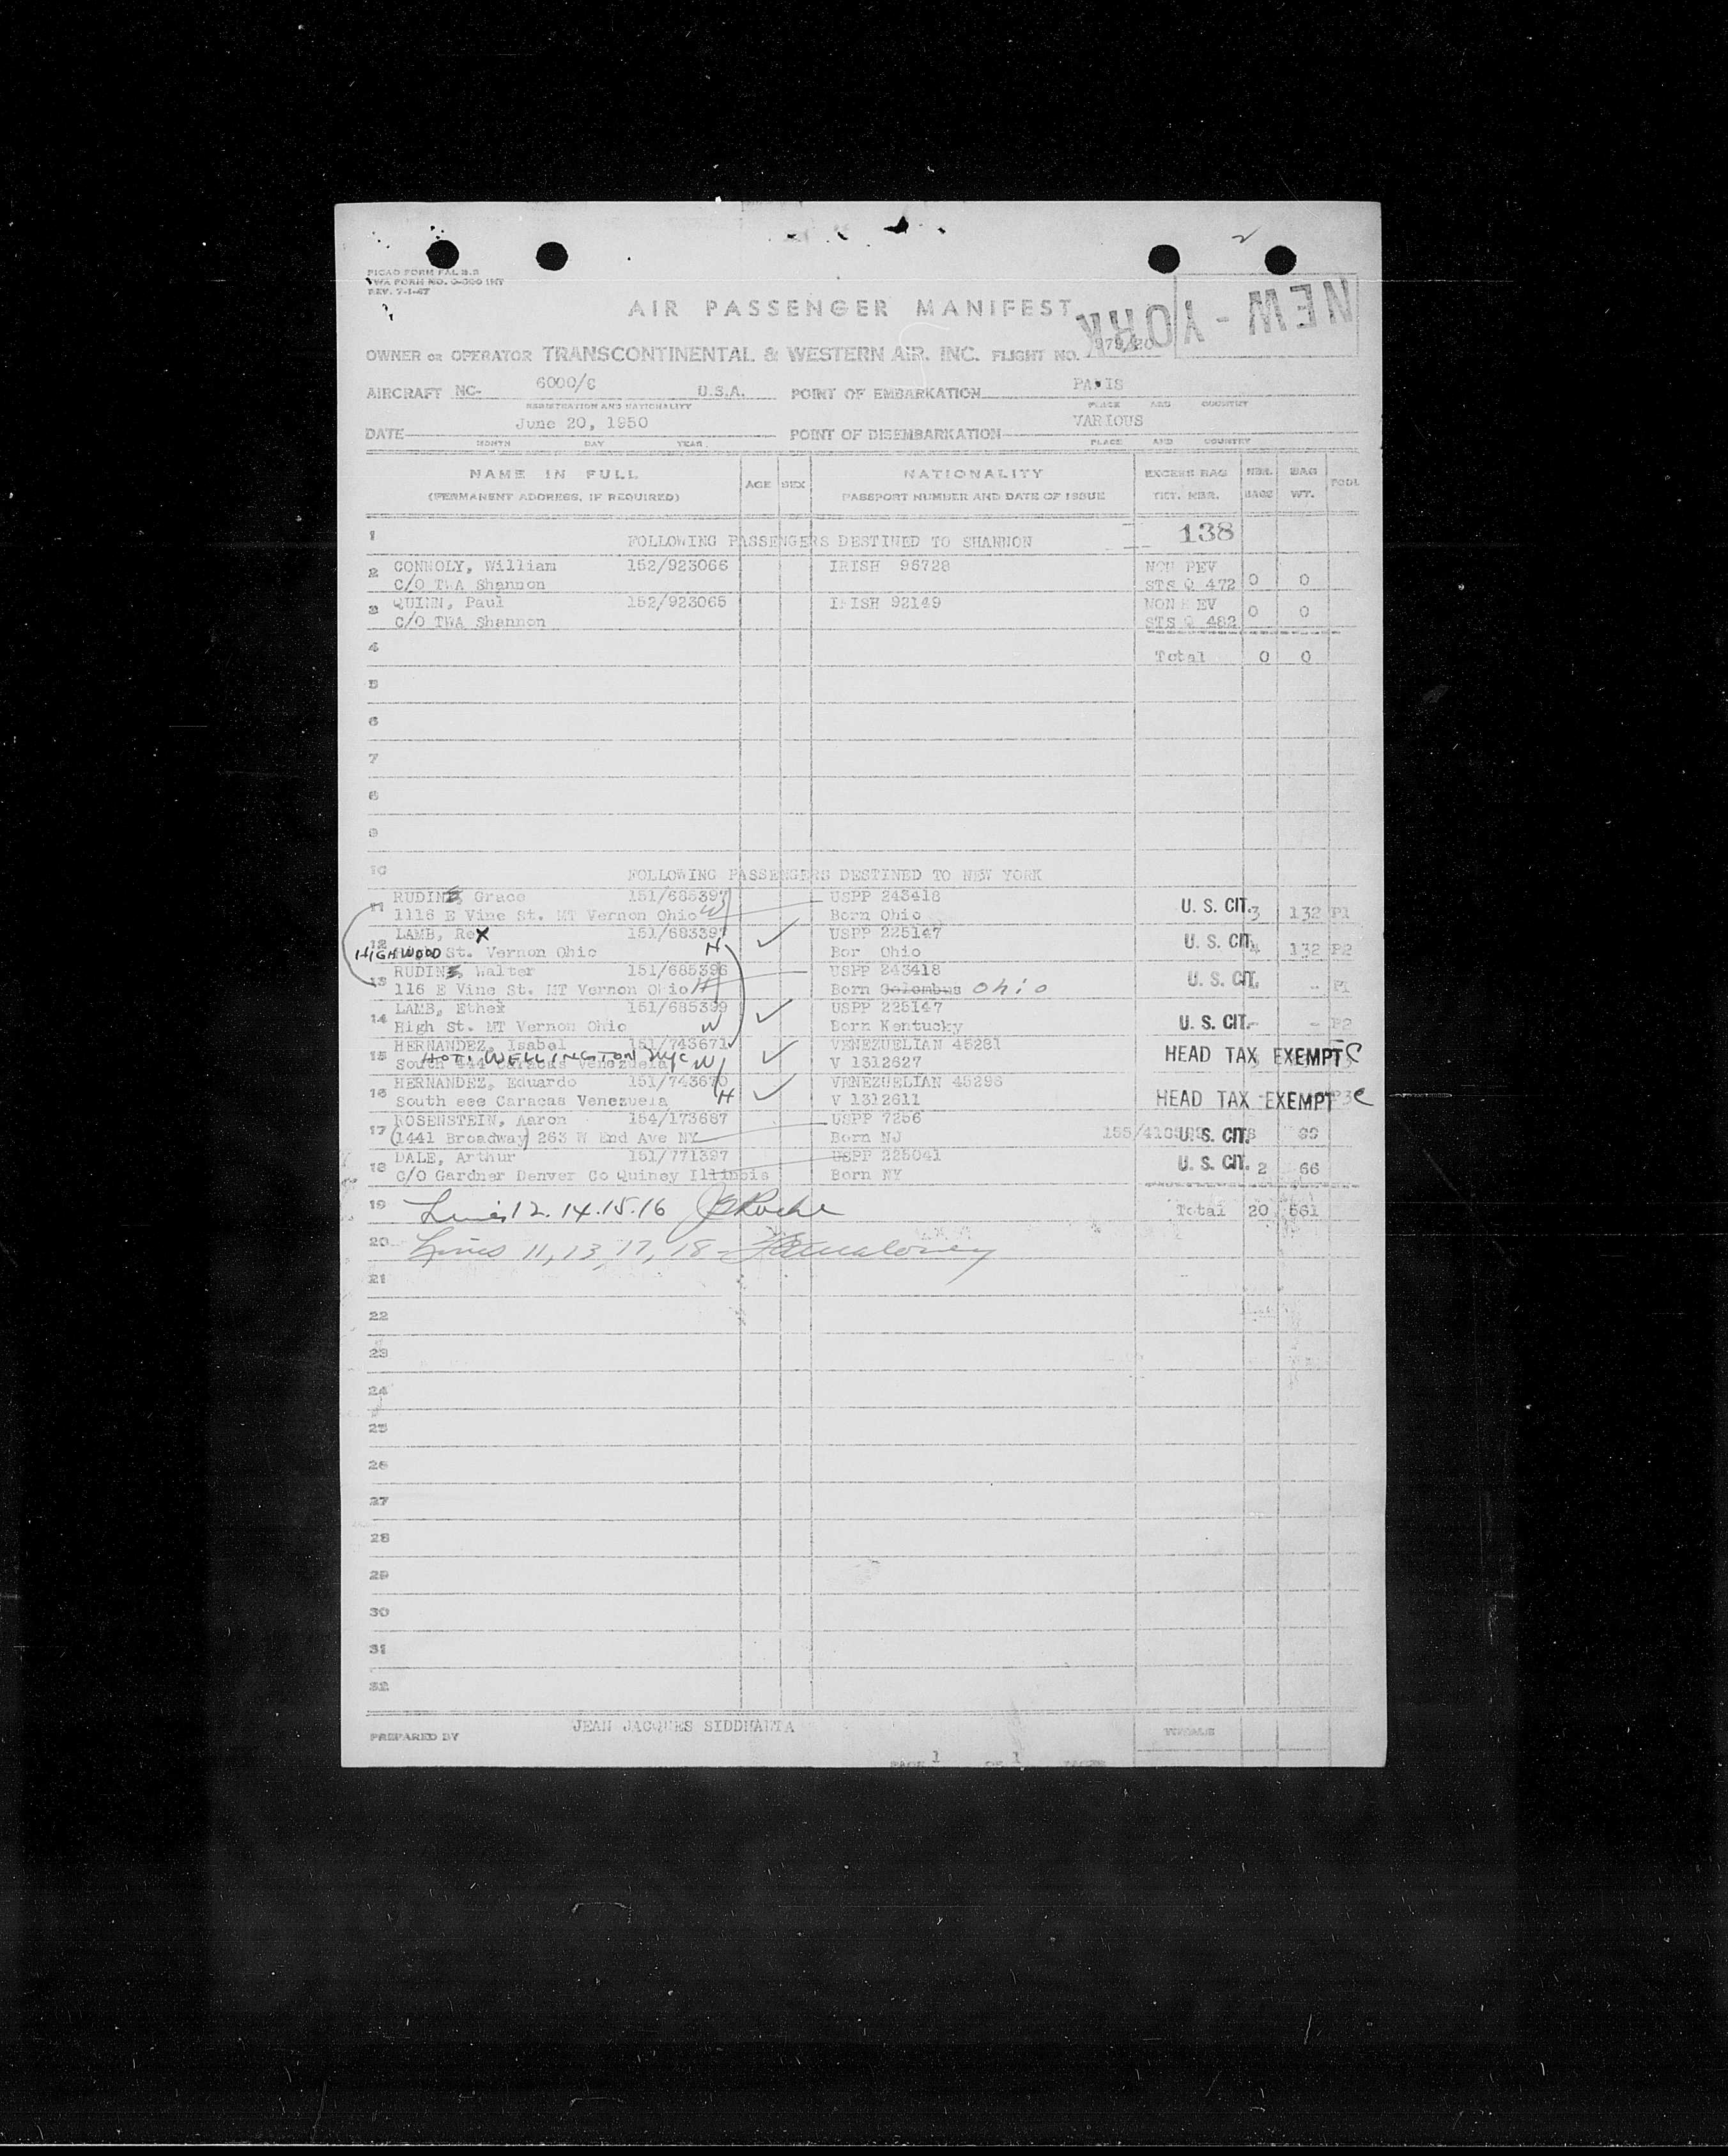 PICAO FORM FAL B.2
TWA FORM NO. O-300 INT
REV. 7-1-47
AIR PASSENGER MANIFEST
NEW-YORK
OWNER OR OPERATOR TRANSCONTINENTAL & WESTERN AIR. INC. FLIGHT NO.
AIRCRAFT NC- 6000/C U.S.A. POINT OF EMBARKATION PARIS
REGISTRATION AND NATIONALITY PLACE AND COUNTRY
DATE June 20, 1950 POINT OF DISEMBARKATION VARIOUS
MONTH DAY YEAR PLACE AND COUNTRY
NAME IN FULL AGE SEX NATIONALITY EXCESS BAG NBR. BAG PODL
(PERMANENT ADDRESS, IF REQUIRED) PASSPORT NUMBER AND DATE OF ISSUE TKT. NBR. BAGS WT.
1 FOLLOWING PASSENGERS DESTINED TO SHANNON 138
2 CONNOLY, William 152/923066 IRISH 96728 NON REV
C/O TWA Shannon STS Q 472 0 0
3 QUINN, Paul 152/923065 IRISH 92149 NON REV
C/O TWA Shannon STS Q 482 0 0
4 Total 0 0
5
6
7
8
9
10 FOLLOWING PASSENGERS DESTINED TO NEW YORK
11 RUDIN, Grace 151/685397 USPP 243418
1116 E Vine St. MT Vernon Ohio W Born Ohio U. S. CIT. 3 132 P1
12 LAMB, Rex 151/683397 USPP 225147
HIGHWOOD St. Vernon Ohio H Bor Ohio U. S. CIT. 4 132 P2
13 RUDIN, Walter 151/685396 USPP 243418
116 E Vine St. MT Vernon Ohio H Born Colombus Ohio U. S. CIT. - P1
14 LAMB, Ethel 151/685399 USPP 225147
High St. MT Vernon Ohio W Born Kentucky U. S. CIT. - - P2
15 HERNANDEZ, Isabel 151/743671 VENEZUELIAN 45281
HOT: WELLINGTON NYC
South 444 Caracas Venezuela W V 1312627 HEAD TAX EXEMPT C
16 HERNANDEZ, Eduardo 151/743670 VENEZUELIAN 45296
South eee Caracas Venezuela H V 1312611 HEAD TAX EXEMPT P3 C
17 ROSENSTEIN, Aaron 154/173687 USPP 7256
(1441 Broadway) 263 W End Ave NY Born NJ U. S. CIT.
18 DALE, Arthur 151/771397 USPP 225041
C/O Gardner Denver Co Quincy Illinois Born NY U. S. CIT. 2 66
19 Lines 12.14.15.16 JE Roche Total 20 561
20 Lines 11, 13, 17, 18 -
21
22
23
24
25
26
27
28
29
30
31
32
PREPARED BY JEAN JACQUES SIDDHARTA TOTALS
PAGE 1 OF 1 PAGES